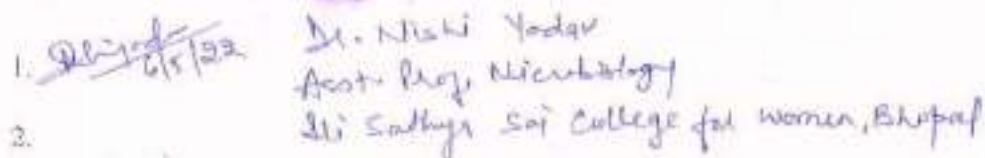 1. 6/5/22 Dr. Nishi Yadav
Asst. Prof. Microbiology
2. Sri Sathya Sai College for Women, Bhopal